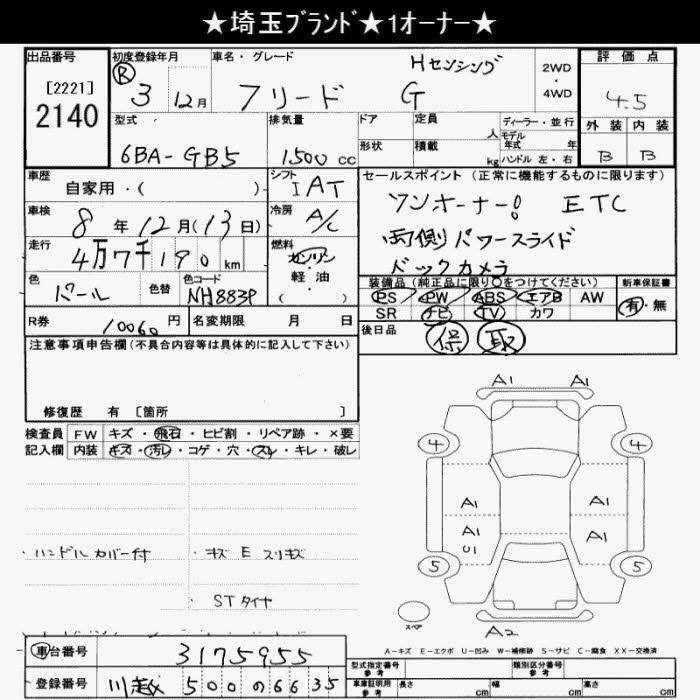 ★埼玉ﾌﾞﾗﾝﾄﾞ★1オーナー★
出品番号 [2221] 2140
初度登録年月 Ⓡ 3 12月
車名・グレード フリード Hセンシング G
2WD・4WD
評価点 4.5
外装 B 内装 B
型式 6BA-GB5
排気量 1500cc
ドア 定員 人
ディーラー・並行
モデル年式 年
形状 積載 kg ハンドル 左・右
車歴 自家用・( )
シフト IAT
セールスポイント(正常に機能するものに限ります)
ワンオーナー! ETC
両側パワースライド
バックカメラ
車検 8年12月(13日)
冷房 A/C
走行 4万7千190km
燃料 ガソリン・軽油 ( )
色 パール 色替 色コード NH883P
装備品(純正品に限り○をつけてください)
PS PW ABS エアB AW
SR ナビ TV カワ
新車保証書 有・無
R券 10060円 名変期限 月 日
後日品 保 取
注意事項申告欄(不具合内容等は具体的に記入して下さい)
修復歴 有 [箇所 ]
検査員記入欄
FW キズ・飛石・ヒビ割・リペア跡・×要
内装 キズ・汚レ・コゲ・穴・スレ・キレ・破レ
・ハンドルカバー付 ・キズ E スリキズ
STタイヤ
A1 A1
4 4
A1 A1
A1 U1 A1
5 5
スペア
A2
A-キズ E-エクボ U-凹み W-補修跡 S-サビ C-腐食 XX-交換済
車台番号 3175955
登録番号 川越 500の6635
型式指定番号 参考 類別区分番号 参考
車庫証明用 参考 長さ cm 幅 cm 高さ cm